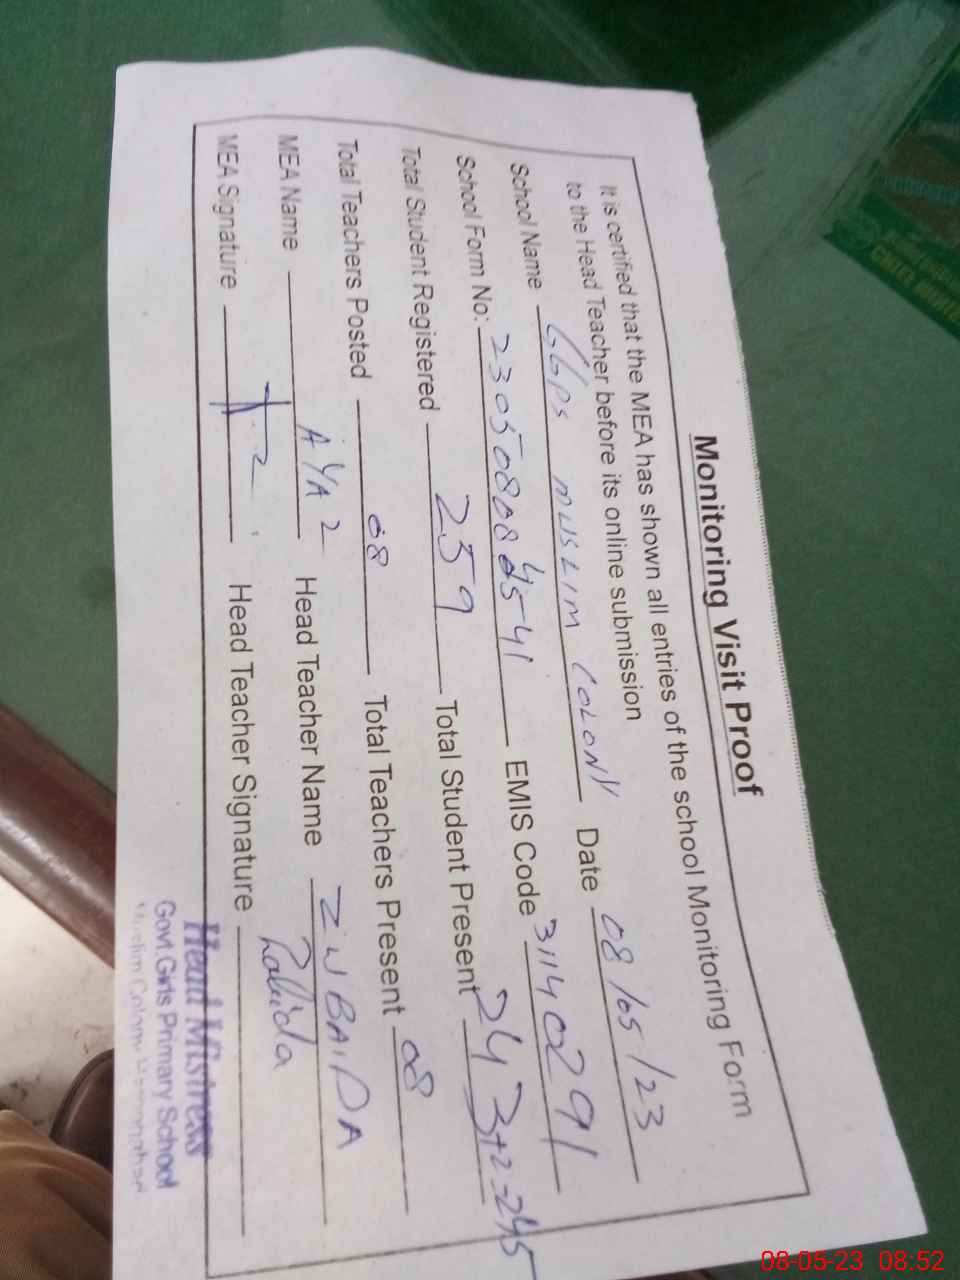 Monitoring Visit Proof
It is certified that the MEA has shown all entries of the school Monitoring Form
to the Head Teacher before its online submission
School Name GGPS MUSLIM COLONY Date 08/05/23
School Form No: EMIS Code 31140291
Total Student Registered 259 Total Student Present 243+2=245
Total Teachers Posted 08 Total Teachers Present 08
MEA Name Head Teacher Name ZUBAIDA
MEA Signature Head Teacher Signature Zubida
Head Mistress
Govt.Girls Primary School
Muslim Colony
08-05-23 08:52